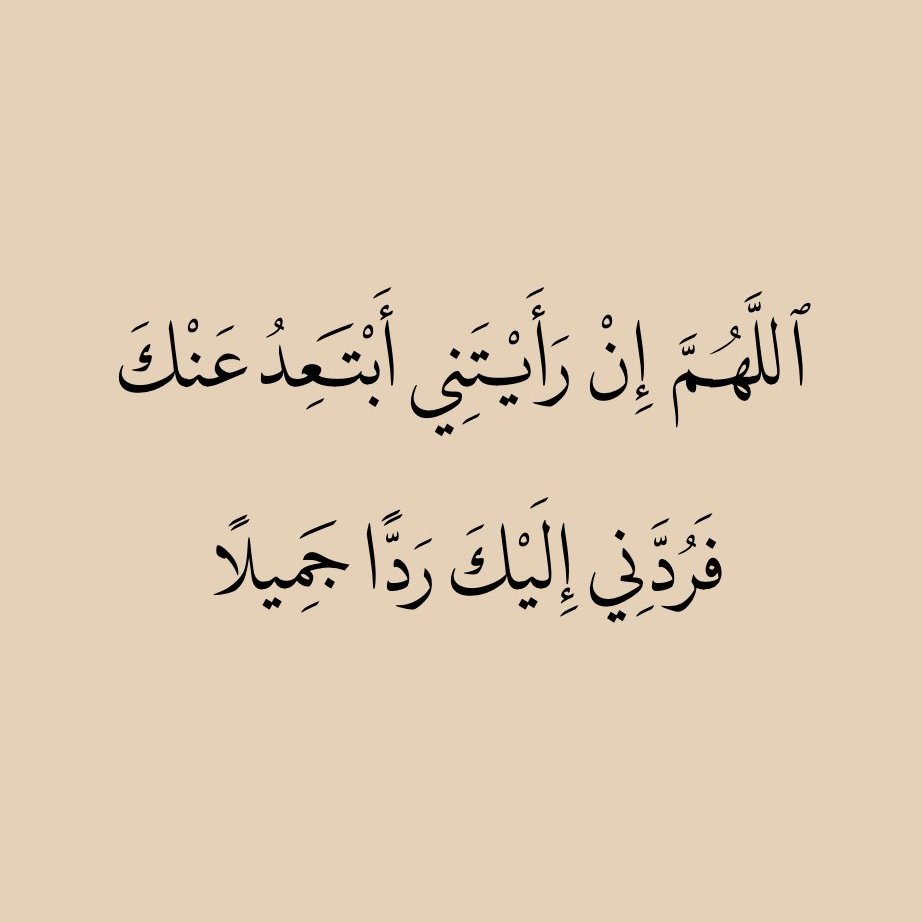 ٱللَّهُمَّ إِنْ رَأَيْتَنِي أَبْتَعِدُ عَنْكَ
فَرُدَّنِي إِلَيْكَ رَدًّا جَمِيلًا